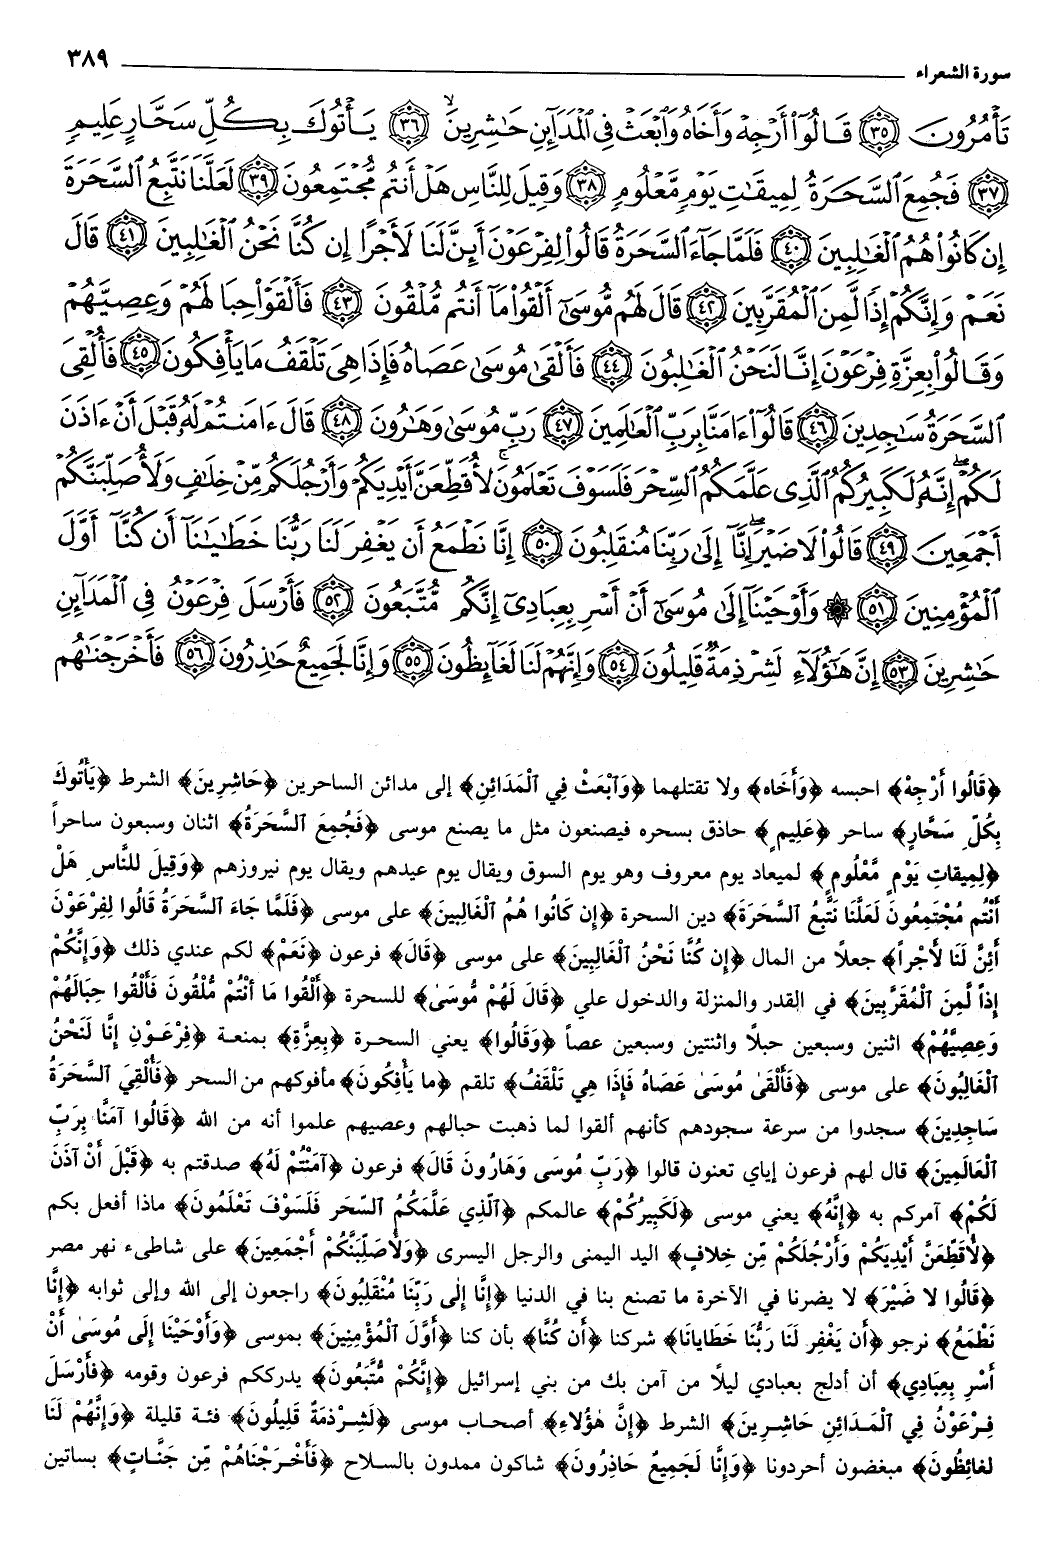 سورة الشعراء ٣٨٩
تَأْمُرُونَ ﴿٣٥﴾ قَالُوٓا۟ أَرْجِهْ وَأَخَاهُ وَٱبْعَثْ فِى ٱلْمَدَآئِنِ حَـٰشِرِينَ ﴿٣٦﴾ يَأْتُوكَ بِكُلِّ سَحَّارٍ عَلِيمٍ
﴿٣٧﴾ فَجُمِعَ ٱلسَّحَرَةُ لِمِيقَـٰتِ يَوْمٍ مَّعْلُومٍ ﴿٣٨﴾ وَقِيلَ لِلنَّاسِ هَلْ أَنتُم مُّجْتَمِعُونَ ﴿٣٩﴾ لَعَلَّنَا نَتَّبِعُ ٱلسَّحَرَةَ
إِن كَانُوا۟ هُمُ ٱلْغَـٰلِبِينَ ﴿٤٠﴾ فَلَمَّا جَآءَ ٱلسَّحَرَةُ قَالُوا۟ لِفِرْعَوْنَ أَئِنَّ لَنَا لَأَجْرًا إِن كُنَّا نَحْنُ ٱلْغَـٰلِبِينَ ﴿٤١﴾ قَالَ
نَعَمْ وَإِنَّكُمْ إِذًا لَّمِنَ ٱلْمُقَرَّبِينَ ﴿٤٢﴾ قَالَ لَهُم مُّوسَىٰٓ أَلْقُوا۟ مَآ أَنتُم مُّلْقُونَ ﴿٤٣﴾ فَأَلْقَوْا۟ حِبَالَهُمْ وَعِصِيَّهُمْ
وَقَالُوا۟ بِعِزَّةِ فِرْعَوْنَ إِنَّا لَنَحْنُ ٱلْغَـٰلِبُونَ ﴿٤٤﴾ فَأَلْقَىٰ مُوسَىٰ عَصَاهُ فَإِذَا هِىَ تَلْقَفُ مَا يَأْفِكُونَ ﴿٤٥﴾ فَأُلْقِىَ
ٱلسَّحَرَةُ سَـٰجِدِينَ ﴿٤٦﴾ قَالُوٓا۟ ءَامَنَّا بِرَبِّ ٱلْعَـٰلَمِينَ ﴿٤٧﴾ رَبِّ مُوسَىٰ وَهَـٰرُونَ ﴿٤٨﴾ قَالَ ءَامَنتُمْ لَهُۥ قَبْلَ أَنْ ءَاذَنَ
لَكُمْ ۖ إِنَّهُۥ لَكَبِيرُكُمُ ٱلَّذِى عَلَّمَكُمُ ٱلسِّحْرَ فَلَسَوْفَ تَعْلَمُونَ ۚ لَأُقَطِّعَنَّ أَيْدِيَكُمْ وَأَرْجُلَكُم مِّنْ خِلَـٰفٍ وَلَأُصَلِّبَنَّكُمْ
أَجْمَعِينَ ﴿٤٩﴾ قَالُوا۟ لَا ضَيْرَ ۖ إِنَّآ إِلَىٰ رَبِّنَا مُنقَلِبُونَ ﴿٥٠﴾ إِنَّا نَطْمَعُ أَن يَغْفِرَ لَنَا رَبُّنَا خَطَـٰيَـٰنَآ أَن كُنَّآ أَوَّلَ
ٱلْمُؤْمِنِينَ ﴿٥١﴾ ۞ وَأَوْحَيْنَآ إِلَىٰ مُوسَىٰٓ أَنْ أَسْرِ بِعِبَادِىٓ إِنَّكُم مُّتَّبَعُونَ ﴿٥٢﴾ فَأَرْسَلَ فِرْعَوْنُ فِى ٱلْمَدَآئِنِ
حَـٰشِرِينَ ﴿٥٣﴾ إِنَّ هَـٰٓؤُلَآءِ لَشِرْذِمَةٌ قَلِيلُونَ ﴿٥٤﴾ وَإِنَّهُمْ لَنَا لَغَآئِظُونَ ﴿٥٥﴾ وَإِنَّا لَجَمِيعٌ حَـٰذِرُونَ ﴿٥٦﴾ فَأَخْرَجْنَـٰهُم
﴿قَالُوا أَرْجِهْ﴾ احبسه ﴿وَأَخَاه﴾ ولا تقتلهما ﴿وَٱبْعَثْ فِي ٱلْمَدَائِنِ﴾ إلى مدائن الساحرين ﴿حَاشِرِينَ﴾ الشرط ﴿يَأْتُوكَ
بِكُلِّ سَحَّارٍ﴾ ساحر ﴿عَلِيمٍ﴾ حاذق بسحره فيصنعون مثل ما يصنع موسى ﴿فَجُمِعَ ٱلسَّحَرَةُ﴾ اثنان وسبعون ساحراً
﴿لِمِيقَاتِ يَوْمٍ مَّعْلُومٍ﴾ لميعاد يوم معروف وهو يوم السوق ويقال يوم عيدهم ويقال يوم نيروزهم ﴿وَقِيلَ لِلنَّاسِ هَلْ
أَنْتُم مُجْتَمِعُونَ لَعَلَّنَا نَتَّبِعُ ٱلسَّحَرَةَ﴾ دين السحرة ﴿إِن كَانُوا هُمُ ٱلْغَالِبِينَ﴾ على موسى ﴿فَلَمَّا جَاءَ ٱلسَّحَرَةُ قَالُوا لِفِرْعَوْنَ
أَئِنَّ لَنَا لأَجْراً﴾ جعلاً من المال ﴿إِن كُنَّا نَحْنُ ٱلْغَالِبِينَ﴾ على موسى ﴿قَالَ﴾ فرعون ﴿نَعَمْ﴾ لكم عندي ذلك ﴿وَإِنَّكُمْ
إِذاً لَّمِنَ ٱلْمُقَرَّبِينَ﴾ في القدر والمنزلة والدخول علي ﴿قَالَ لَهُمْ مُّوسَىٰ﴾ للسحرة ﴿أَلْقُوا مَا أَنْتُمْ مُلْقُونَ فَأَلْقُوا حِبَالَهُمْ
وَعِصِيَّهُمْ﴾ اثنين وسبعين حبلاً واثنتين وسبعين عصاً ﴿وَقَالُوا﴾ يعني السحرة ﴿بِعِزَّةِ﴾ بمنعة ﴿فِرْعَوْنَ إِنَّا لَنَحْنُ
ٱلْغَالِبُونَ﴾ على موسى ﴿فَأَلْقَىٰ مُوسَىٰ عَصَاهُ فَإِذَا هِي تَلْقَفُ﴾ تلقم ﴿ما يَأْفِكُونَ﴾ مأفوكهم من السحر ﴿فَأُلْقِيَ ٱلسَّحَرَةُ
سَاجِدِينَ﴾ سجدوا من سرعة سجودهم كأنهم ألقوا لما ذهبت حبالهم وعصيهم علموا أنه من الله ﴿قَالُوا آمَنَّا بِرَبِّ
ٱلْعَالَمِينَ﴾ قال لهم فرعون إياي تعنون قالوا ﴿رَبِّ مُوسَى وَهَارُونَ قَالَ﴾ فرعون ﴿آمَنْتُمْ لَهُ﴾ صدقتم به ﴿قَبْلَ أَنْ آذَنَ
لَكُمْ﴾ آمركم به ﴿إِنَّهُ﴾ يعني موسى ﴿لَكَبِيرُكُمْ﴾ عالمكم ﴿ٱلَّذِي عَلَّمَكُمُ ٱلسِّحَر فَلَسَوْفَ تَعْلَمُونَ﴾ ماذا أفعل بكم
﴿لأُقَطِّعَنَّ أَيْدِيَكُمْ وَأَرْجُلَكُمْ مِّن خِلافٍ﴾ اليد اليمنى والرجل اليسرى ﴿وَلأُصَلِّبَنَّكُمْ أَجْمَعِينَ﴾ على شاطىء نهر مصر
﴿قَالُوا لا ضَيْرَ﴾ لا يضرنا في الآخرة ما تصنع بنا في الدنيا ﴿إِنَّا إِلَى رَبِّنَا مُنْقَلِبُونَ﴾ راجعون إلى الله وإلى ثوابه ﴿إِنَّا
نَطْمَعُ﴾ نرجو ﴿أَن يَغْفِر لَنَا رَبُّنَا خَطَايَانَا﴾ شركنا ﴿أَن كُنَّا﴾ بأن كنا ﴿أَوَّلَ ٱلْمُؤْمِنِينَ﴾ بموسى ﴿وَأَوْحَيْنَا إِلَى مُوسَىٰ أَنْ
أَسْرِ بِعِبَادِي﴾ أن أدلج بعبادي ليلاً من آمن بك من بني إسرائيل ﴿إِنَّكُمْ مُّتَّبَعُونَ﴾ يدرككم فرعون وقومه ﴿فَأَرْسَلَ
فِرْعَوْنُ فِي ٱلْمَدَائِنِ حَاشِرِينَ﴾ الشرط ﴿إِنَّ هٰؤُلاءِ﴾ أصحاب موسى ﴿لَشِرْذِمَةٌ قَلِيلُونَ﴾ فئة قليلة ﴿وَإِنَّهُمْ لَنَا
لغائِظُونَ﴾ مبغضون أحردونا ﴿وَإِنَّا لَجَمِيعٌ حَاذِرُونَ﴾ شاكون ممدون بالسلاح ﴿فَأَخْرَجْنَاهُمْ مِّن جَنَّاتٍ﴾ بساتين